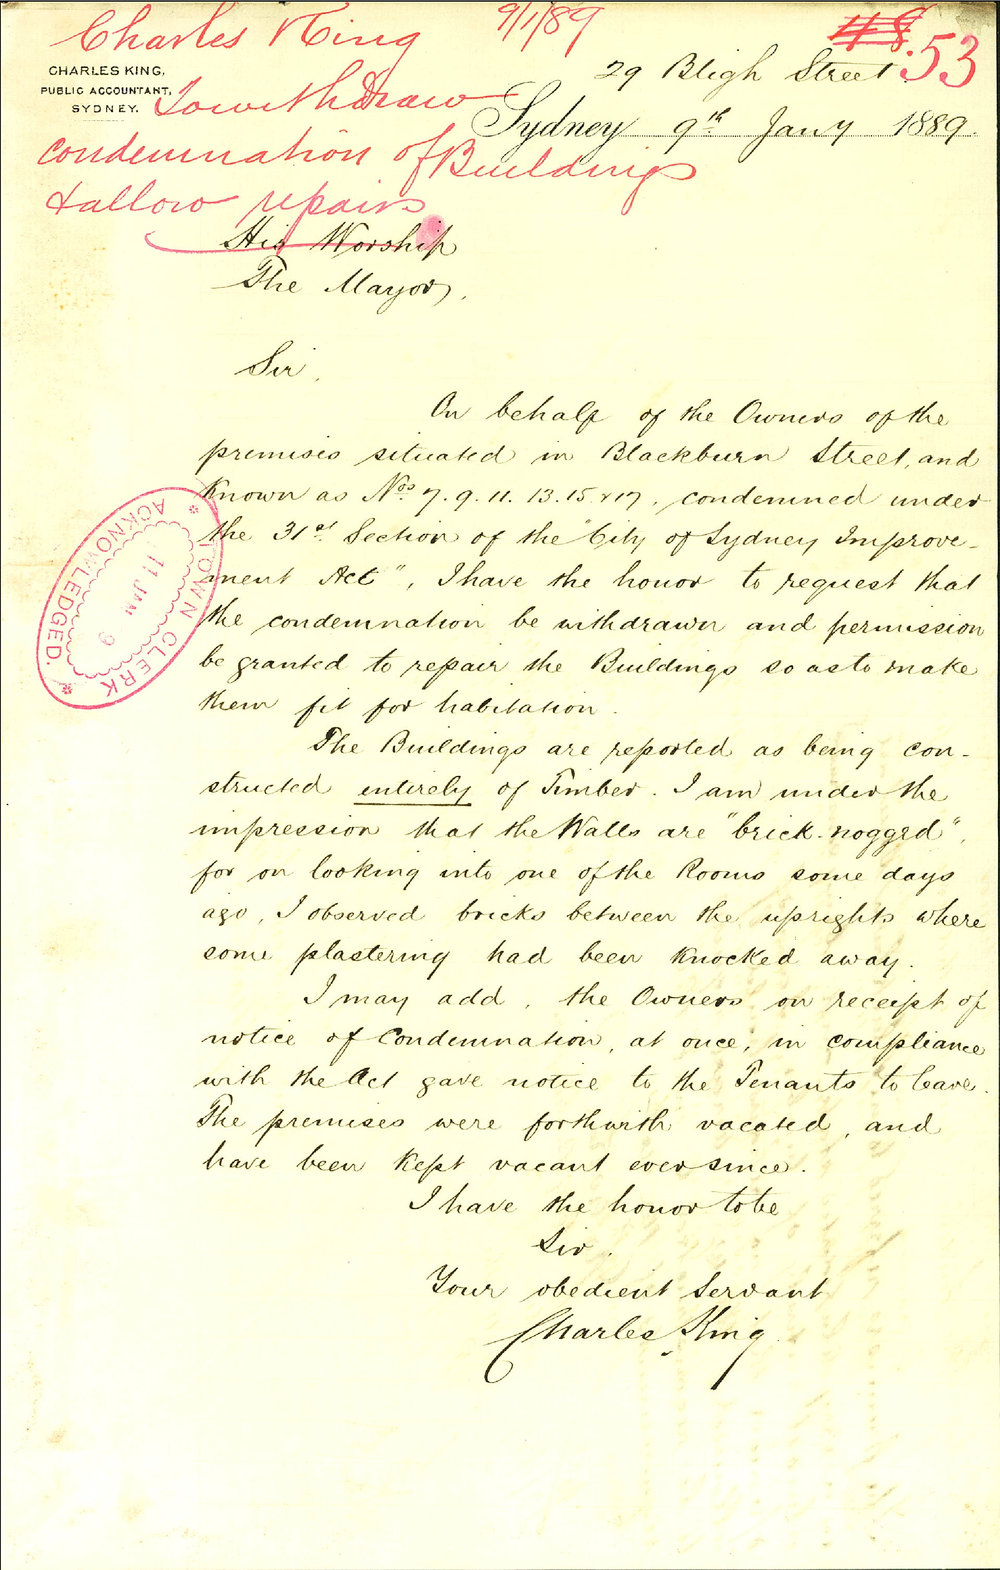 Charles King 9/1/89
53
CHARLES KING,
PUBLIC ACCOUNTANT,
SYDNEY.
29 Bligh Street
Sydney 9th Jany 1889.
To withdraw
condemnation of Buildings
& allow repairs
His Worship
The Mayor,
Sir,
On behalf of the Owners of the
premises situated in Blackburn Street, and
Known as Nos 7. 9. 11. 13. 15. & 17, condemned under
the 31st Section of the "City of Sydney Improve-
ment Act", I have the honor to request that
the condemnation be withdrawn and permission
be granted to repair the Buildings so as to make
them fit for habitation.
The Buildings are reported as being con-
structed entirely of Timber. I am under the
impression that the Walls are "brick-nogged",
for on looking into one of the Rooms some days
ago, I observed bricks between the uprights where
some plastering had been knocked away.
I may add, the Owners on receipt of
notice of Condemnation, at once, in compliance
with the Act gave notice to the Tenants to leave.
The premises were forthwith vacated, and
have been kept vacant ever since.
I have the honor to be
Sir.
Your obedient Servant
Charles King
TOWN CLERK
ACKNOWLEDGED.
11 JAN 9